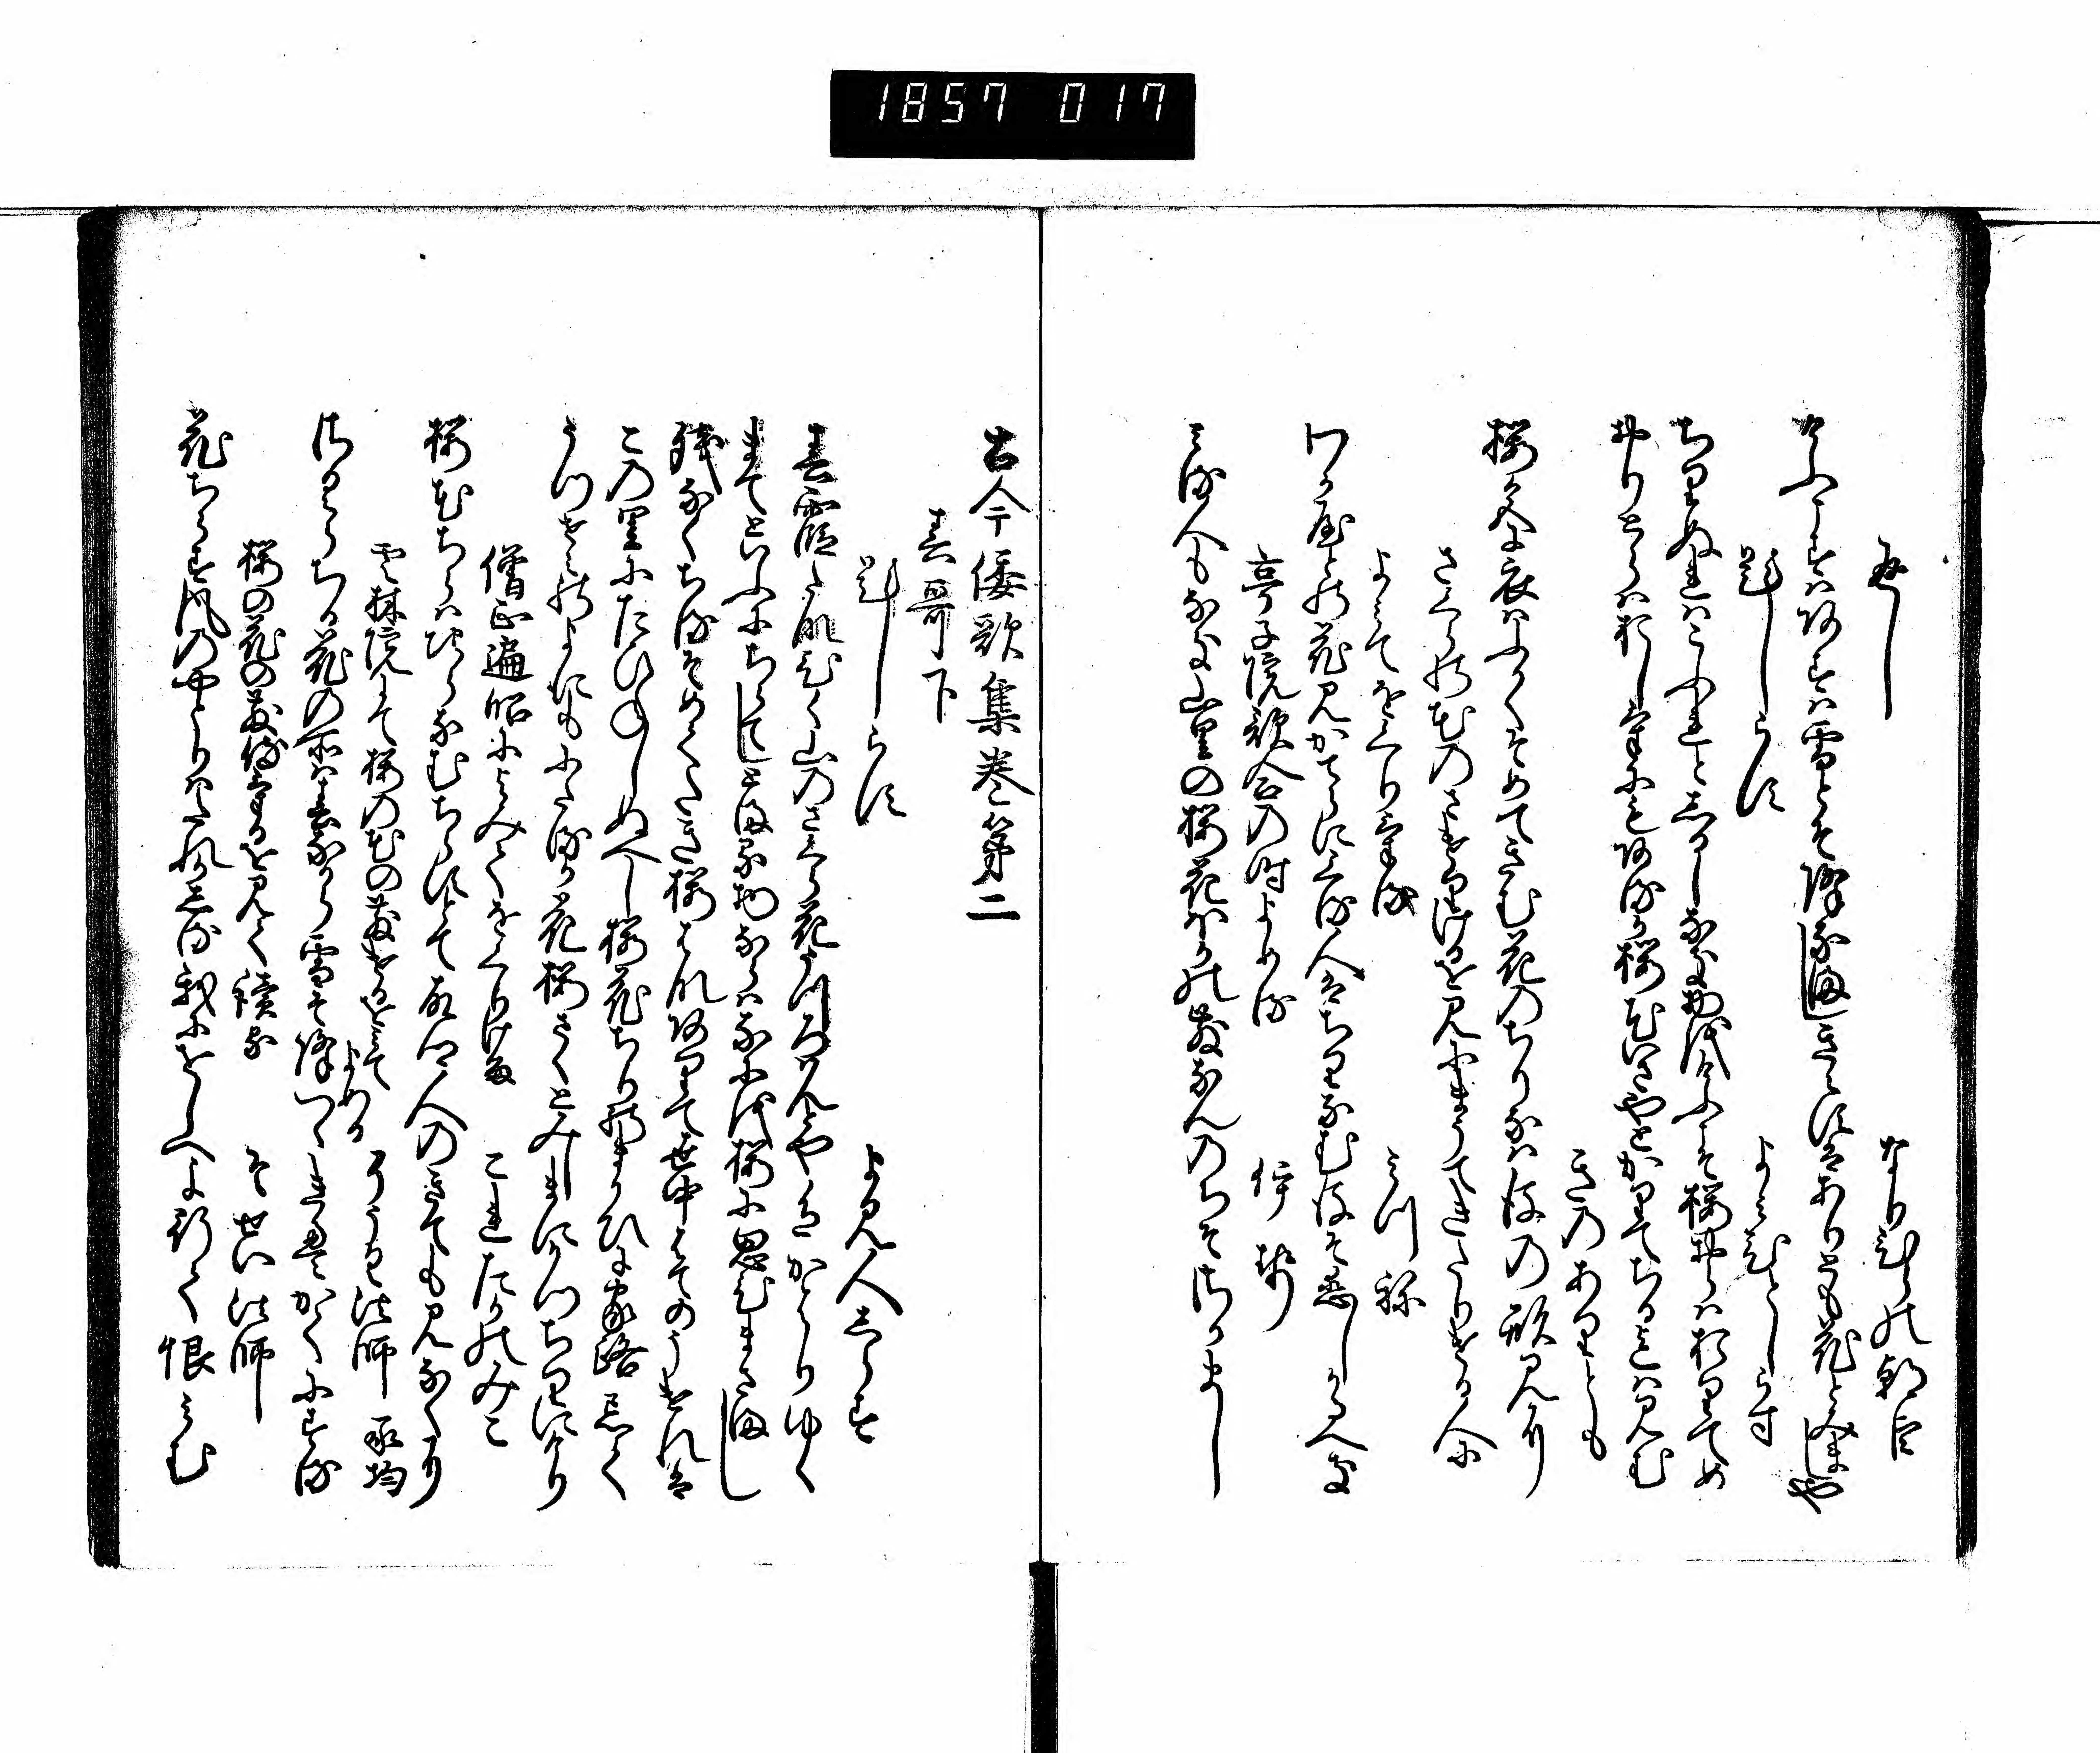 1857 017
返し
なりひらの朝臣
けふこすはあすは雪とそ降なましきえすはありとも花とみましや
題しらす
よみひとしらす
ちりぬれはこふれとしるしなき物をけふこそ桜おらはおりてめ
おりとらはおしけにもあるか桜花いさやとかりてちるまては見む
きのありとも
桜色に衣はふかくそめてきむ花のちりなは後の形見に
さくらの花のさけりけるを見にまうてきたりける人に
よみてをくりける
みつね
わか屋との花見かてらにくる人はちりなむ後そ恋しかるへき
亭子院歌合の時よめる
伊勢
みる人もなき山里の桜花ほかの散なんのちそさかまし
古今倭歌集巻第二
春哥下
題しらす
よみ人しらす
春霞たな引く山のさくら花うつろはんとや色かはりゆく
まてといふにちらてしとまる物ならはなにを桜に思ひまさまし
残なくちるそめてたき桜はな有て世中はてのうけれは
この里にたひねしぬへし桜花ちりのまかひに家路忘て
うつせみのよにもにたるか花桜さくとみしまにかつちりにけり
僧正遍昭によみてをくりける
これたかのみこ
桜花ちらはちらなむちらすとて古郷人のきても見なくに
雲林院にて桜の花の散けるをみてよめる
そうく法師 承均
桜ちる花の所は春なから雪そ降つゝきえかてにする
桜の花の散侍けるを見て読る
そせい法師
花ちらす風のやとりはたれかしる我にをしへよ行て恨みむ